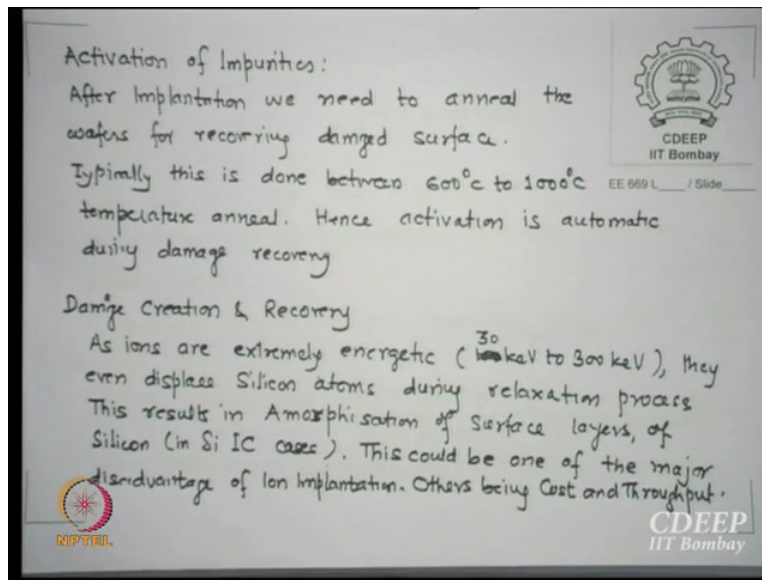 Activation of Impurities:
After Implantation we need to anneal the
wafers for recovering damged surface.
Typically this is done between 600°C to 1000°C
temperature anneal. Hence activation is automatic
during damage recovery
Damage Creation & Recovery
As ions are extremely energetic ( 30 keV to 300 keV), they
even displace Silicon atoms during relaxation process
This results in Amorphisation of Surface layers, of
Silicon (in Si IC cases). This could be one of the major
disadvantage of Ion Implantation. Others being Cost and Throughput.
CDEEP
IIT Bombay
EE 669 L____ / Slide____
NPTEL
CDEEP
IIT Bombay